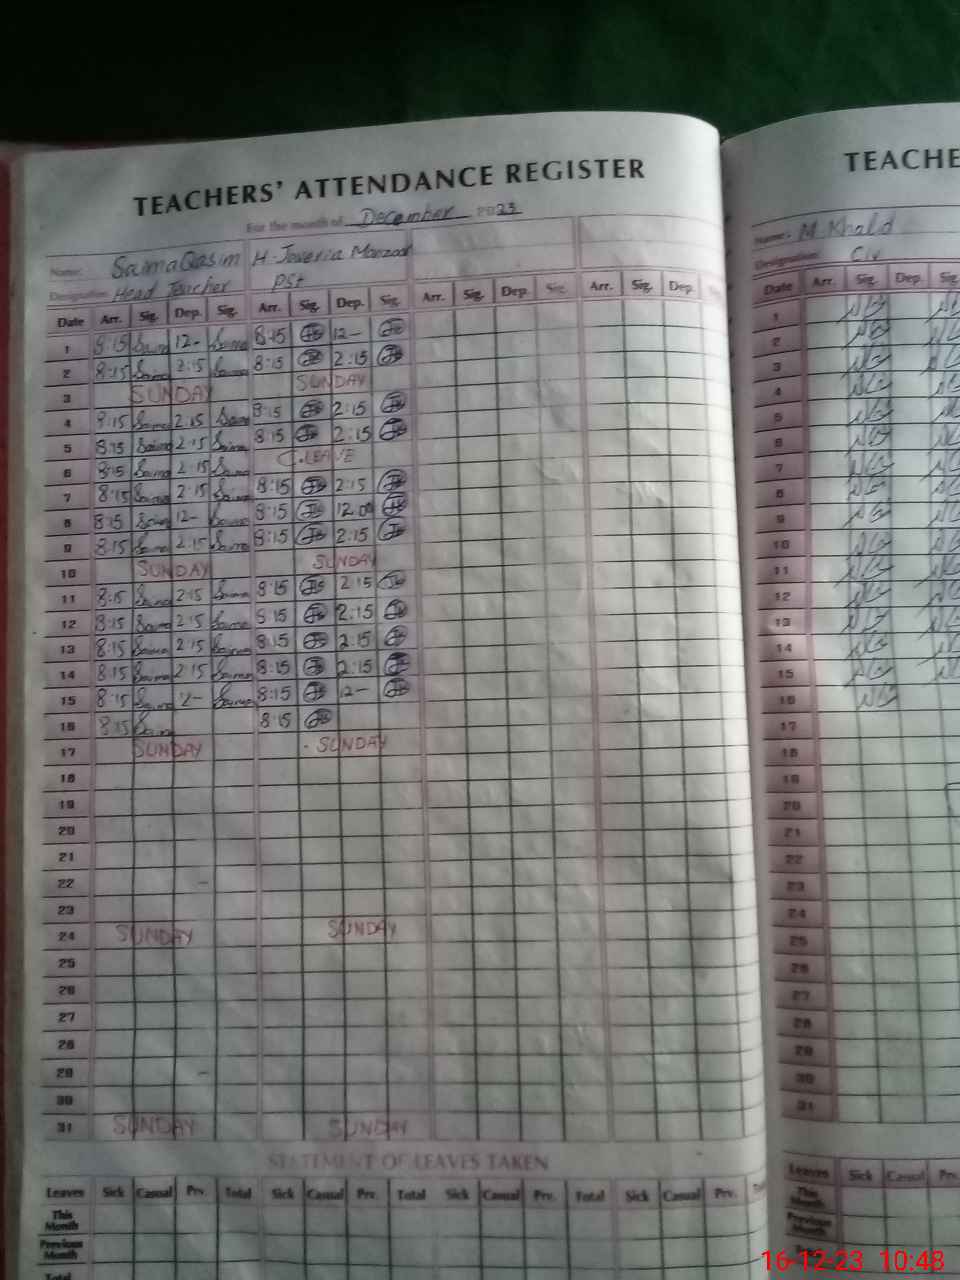 TEACHERS' ATTENDANCE REGISTER
For the month of December 2023
Name: Saima Qasim H. Javeria Manzoor
Designation: Head Teacher PST
Date Arr. Sig. Dep. Sig. Arr. Sig. Dep. Sig. Arr. Sig. Dep. Sig. Arr. Sig. Dep.
1 8:15 Saima 12- Saima 8:15 12-
2 8:15 Saima 2:15 Saima 8:15 2:15
3 SUNDAY SUNDAY
4 8:15 Saima 2:15 Saima 8:15 2:15
5 8:15 Saima 2:15 Saima 8:15 2:15
6 8:15 Saima 2:15 Saima C.LEAVE
7 8:15 Saima 2:15 Saima 8:15 2:15
8 8:15 Saima 12- Saima 8:15 12.00
9 8:15 Saima 2:15 Saima 8:15 2:15
10 SUNDAY SUNDAY
11 8:15 Saima 2:15 Saima 8:15 2:15
12 8:15 Saima 2:15 Saima 8:15 2:15
13 8:15 Saima 2:15 Saima 8:15 2:15
14 8:15 Saima 2:15 Saima 8:15 2:15
15 8:15 Saima 12- Saima 8:15 12-
16 8:15 Saima 8:15
17 SUNDAY SUNDAY
18
19
20
21
22
23
24 SUNDAY SUNDAY
25
26
27
28
29
30
31 SUNDAY SUNDAY
STATEMENT OF LEAVES TAKEN
Leaves Sick Casual Prv. Total Sick Casual Prv. Total Sick Casual Prv. Total Sick Casual Prv.
This Month
Previous Month
Total
TEACHE
Name:- M Khald
Designation:
Date Arr. Sig. Dep. Sig.
1
2
3
4
5
6
7
8
9
10
11
12
13
14
15
16
17
18
19
20
21
22
23
24
25
26
27
28
29
30
31
Leaves Sick Casual
This Month
Previous Month
16-12-23 10:48